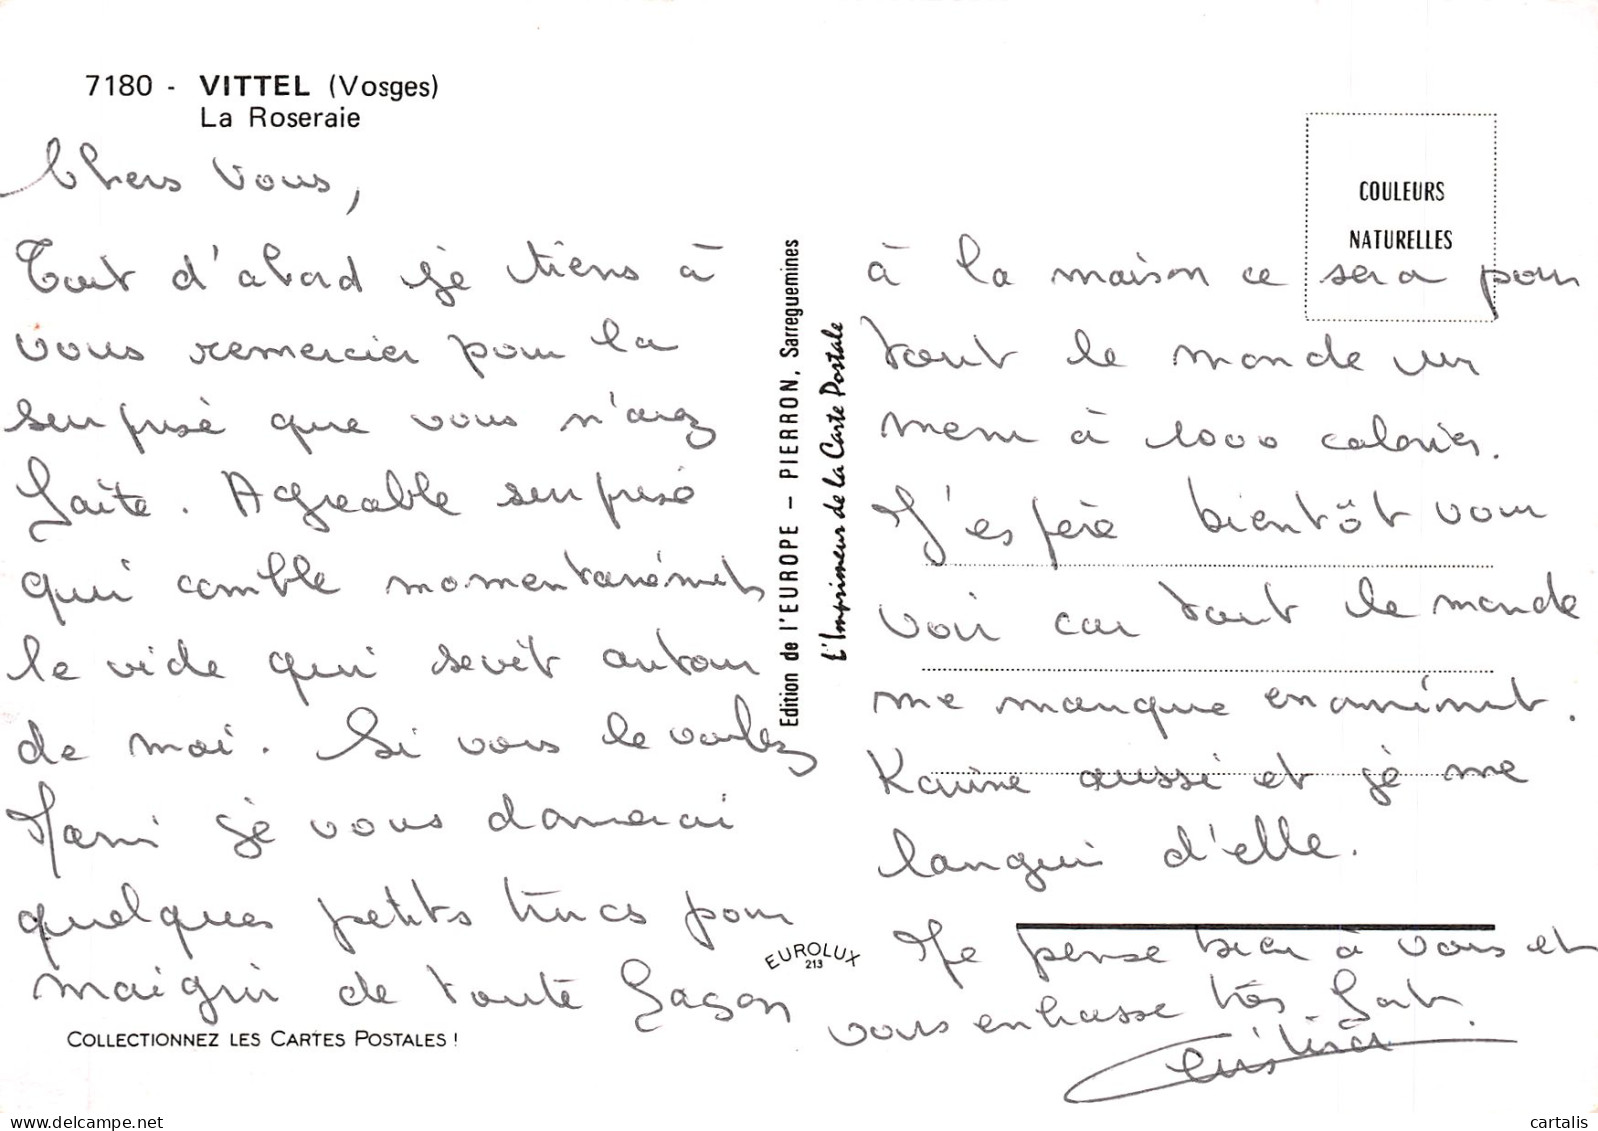 7180 - VITTEL (Vosges)
La Roseraie
Chers Vous,
Tout d'abord je tiens à
vous remercier pour la
surprise que vous m'avez
faite. Agréable surprise
qui comble momentanément
le vide qui sevit autour
de moi. Si vous le voulez
Mami je vous donnerai
quelques petits trucs pour
maigrir de toute façon
COLLECTIONNEZ LES CARTES POSTALES !
Edition de l'EUROPE - PIERRON, Sarreguemines
L'Imprimeur de la Carte Postale
EUROLUX
213
COULEURS
NATURELLES
à la maison ce sera pour
tout le monde un
menu à 1000 calories.
J'espère bientôt vous
voir car tout le monde
me manque énormément.
Karine aussi et je me
langui d'elle.
Je pense bien à vous et
vous embrasse très fort.
Cristina
cartalis